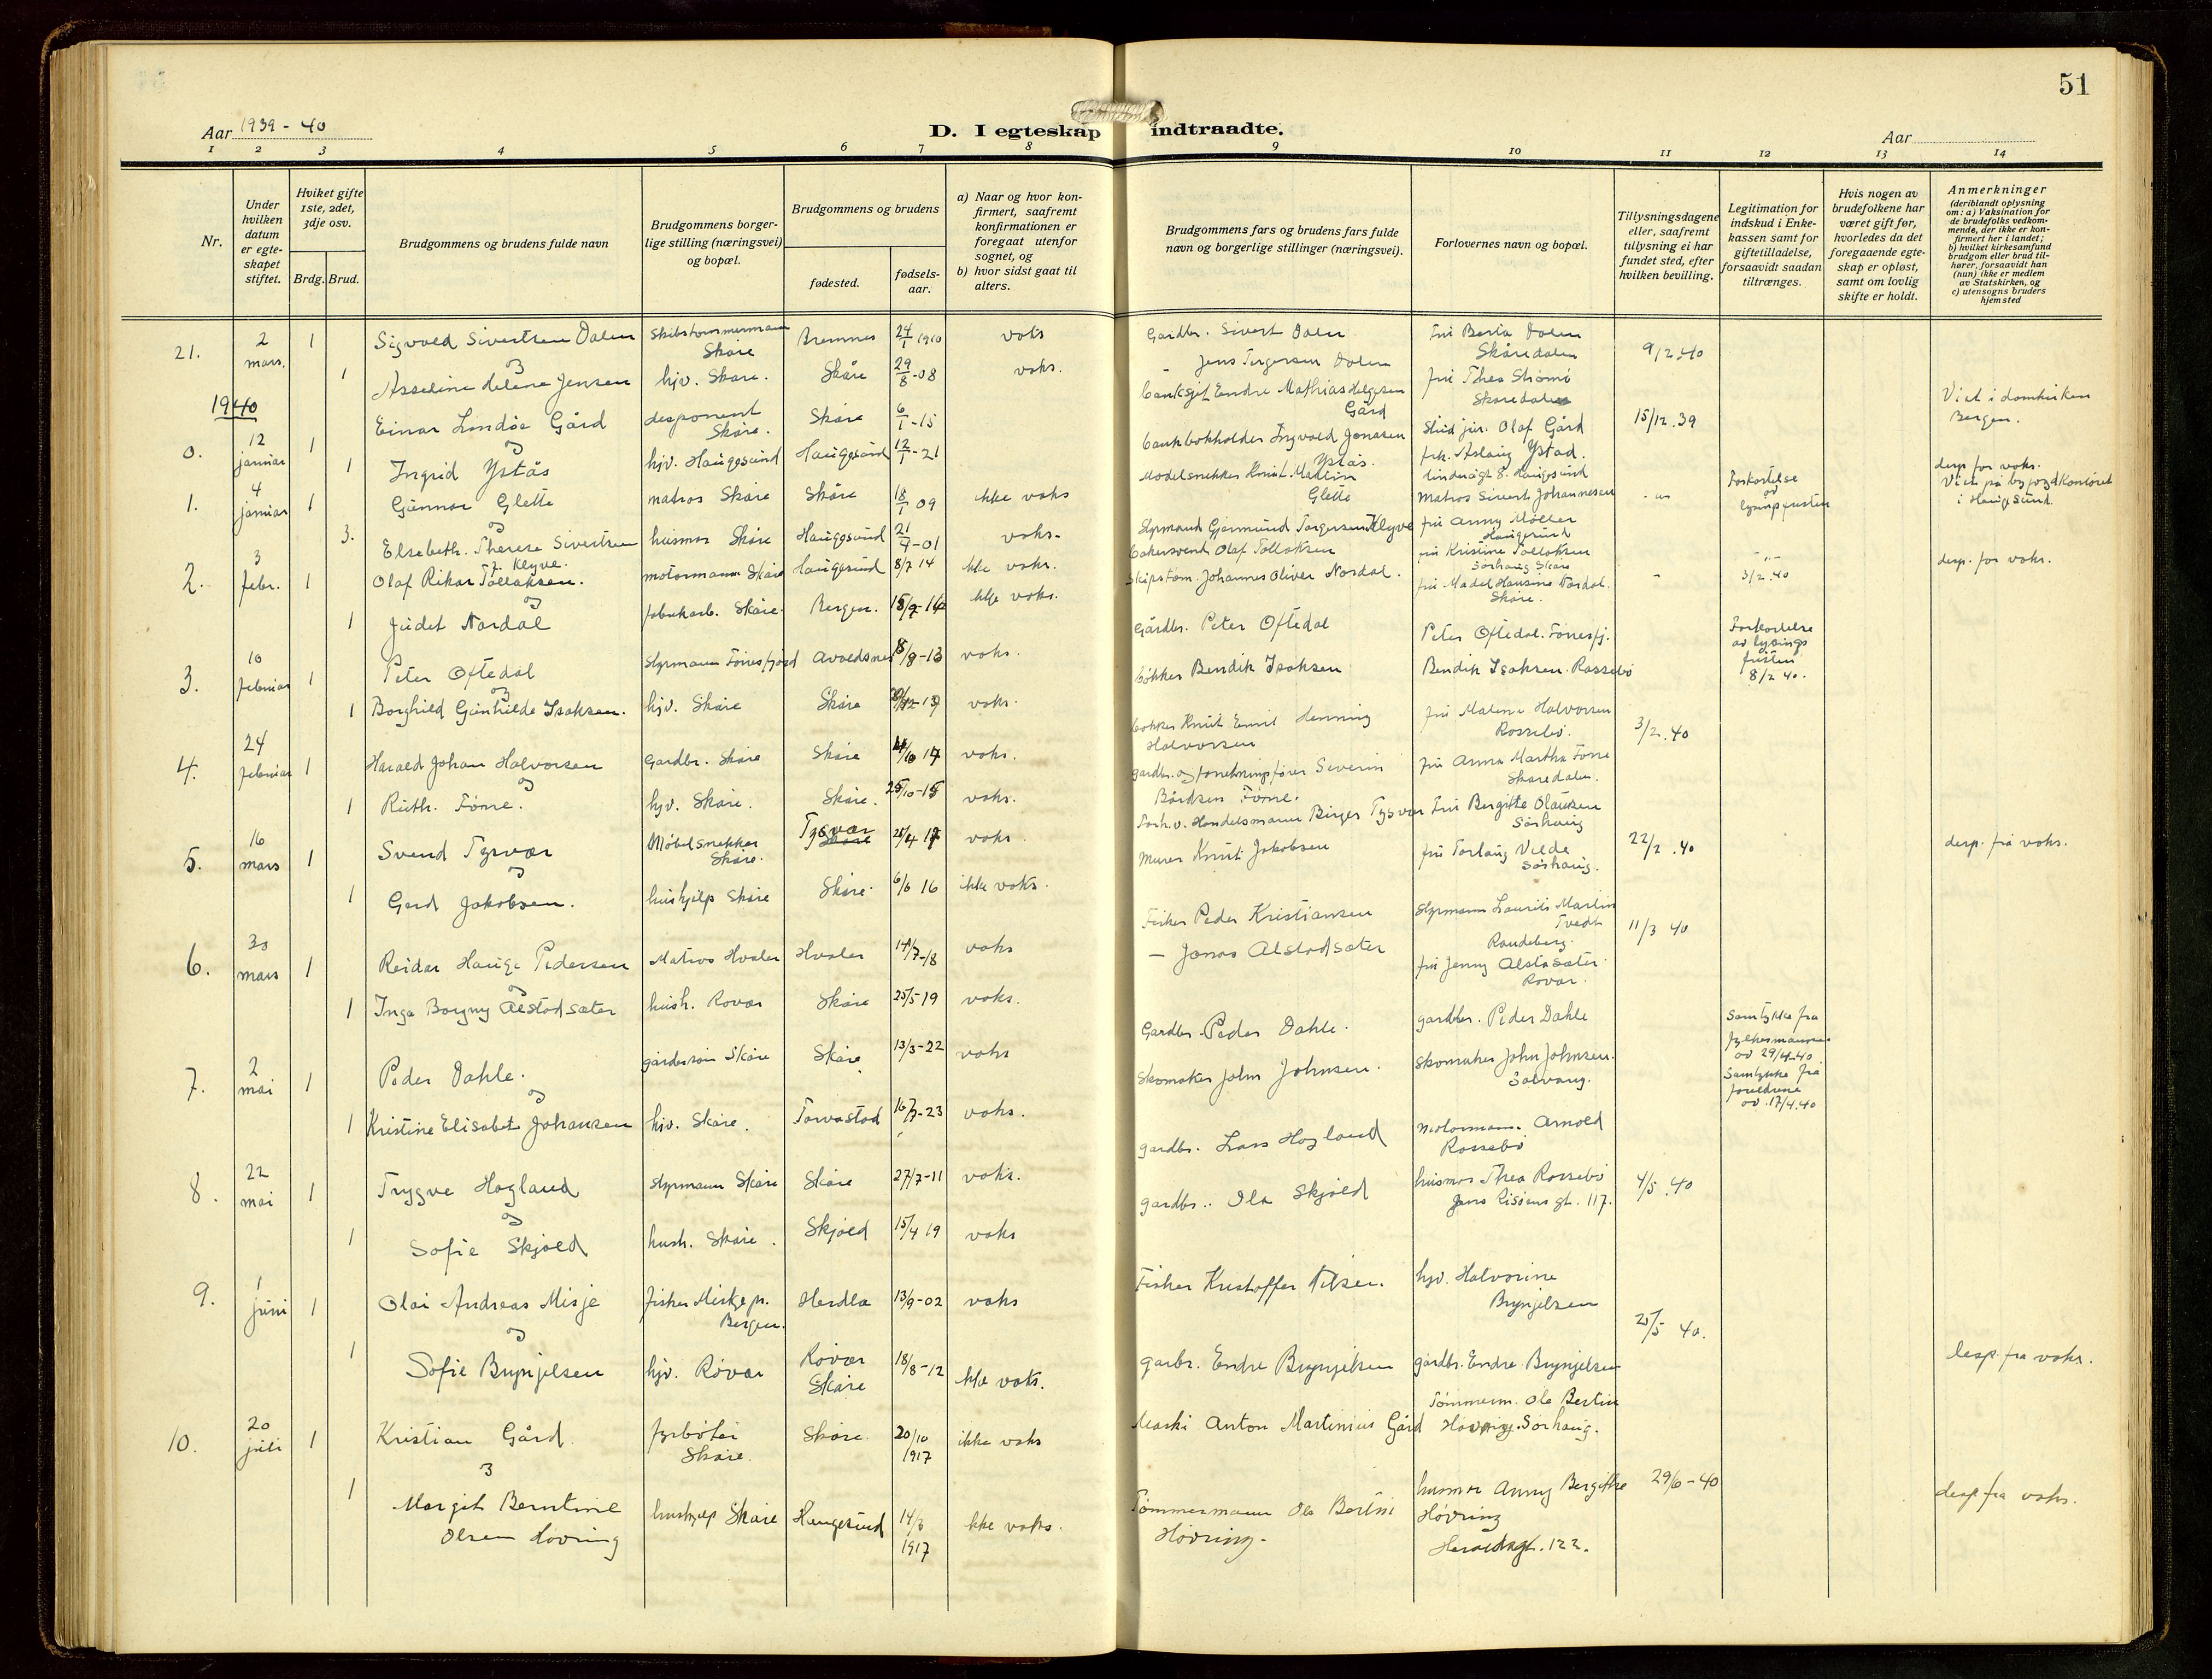 51
Aar 1939 - 40
D. I egteskap indtraadte.
Aar
1 2 3 4 5 6 7 8 9 10 11 12 13 14
Nr.
Under hvilken datum er egteskapet stiftet.
Hviket gifte 1ste, 2det, 3dje osv.
Brdg. Brud.
Brudgommens og brudens fulde navn
Brudgommens borgerlige stilling (næringsvei) og bopæl.
Brudgommens og brudens
fødested.
fødselsaar.
a) Naar og hvor konfirmert, saafremt konfirmationen er foregaat utenfor sognet, og
b) hvor sidst gaat til alters.
Brudgommens fars og brudens fars fulde navn og borgerlige stillinger (næringsvei).
Forlovernes navn og bopæl.
Tillysningsdagene eller, saafremt tillysning ei har fundet sted, efter hvilken bevilling.
Legitimation for indskud i Enkekassen samt for giftetilladelse, forsaavidt saadan tiltrænges.
Hvis nogen av brudefolkene har været gift før, hvorledes da det foregaaende egteskap er opløst, samt om lovlig skifte er holdt.
Anmerkninger (deriblandt oplysning om: a) Vaksination for de brudefolks vedkommende, der ikke er konfirmert her i landet; b) hvilket kirkesamfund brudgom eller brud tilhører, forsaavidt han (hun) ikke er medlem av Statskirken, og c) utensogns bruders hjemsted
21. 2 mars. 1 Sigvald Sivertsen Dalen Skibstømmermann Skåre Bremnes 24/1 1910 vaks Gardbr. Sivert Dalen fru Berta Dalen Skåredalen 9/2.40
og
1 Asseline Helene Jensen hjv. Skåre. Skåre 29/8-08 vaks. - Jens Torgersen Dalen fru Thea Strømø Skåredalen
1940
0. 12 januar 1 Einar Lindøe Gård desponent Skåre. Skåre 6/1-15 banksjef Endre Mathias Helgesen Gård Stud jur. Olaf Gård 15/12.39 Viet i domkirken Bergen.
og
1 Ingrid Ystås hjv. Haugesund Haugesund 12/1-21 bankbokholder Ingvald Jonassen Ystås. frk. Aslaug Ystad.
1. 4 januar 1 Gunnar Glette matros Skåre Skåre 18/1 09 ikke vaks Modelsnekker Knut Martin Glette Matros Sivert Johannesen - " - Forkortelse av lysningsfristen desp for vaks. Viet på byfogdkontoret i Haugesund.
og
3. Elsebeth. Therese Sivertsen f. Klyve. husmor Skåre Haugesund 21/4-01 vaks. Styrmand Gjermund Torgersen Klyve fru Anny Møller Haugesund
2. 3 febr. 1 Olaf Rikar Tollaksen. motormann Skåre Haugesund 8/7 14 ikke vaks. bakersvend Olaf Tollaksen fru Kristine Tollaksen Sørhaug Skåre - - " - 3/2.40 desp. for vaks.
og
1 Judet Nordal fabrikarb. Skåre. Bergen. 15/9-14 ikke vaks. Skipstøm. Johannes Oliver Nordal. fru Madel Hansine Nordal. Skåre.
3. 10 februar 1 Peter Oftedal Styrmann Førresfjord Avaldsnes 8/8-13 vaks. Gårdbr. Peter Oftedal Peter Oftedal. Førresfj. Forkortelse av lysnings fristen 8/2 40.
og
1 Borghild Gunhilde Isaksen. hjv. Skåre Skåre vaks. bøkker Bendik Isaksen Bendik Isaksen. Rossebø
4. 24 februar 1 Harald Johan Halvorsen Gardbr. Skåre Skåre vaks. bøkker Knut Emil Henning Halvorsen fru Malene Halvorsen Rossebø. 3/2.40
og
1 Ruth. Førre. hjv. Skåre. Skåre. 25/10-15 vaks. gardbr. og forretningsfører Severin Bårdsen Førre. fru Anna Martha Førre Skåredalen.
5. 16 mars 1 Svend Tysvær Møbelsnekker Skåre. Tysvær vaks. Forh.v. Handelsmann Birger Tysvær Fru Bergitte Olausen Sørhaug 22/2.40 desp. fra vaks.
og
1 Gerd Jakobsen. hushjelp Skåre Skåre. 6/6 16 ikke vaks. Murer Knut Jakobsen fru Torlaug Velde Sørhaug.
6. 30 mars 1 Reidar Hauge Pedersen Matros Hvaler Hvaler 14/7-18 vaks Fisker Peder Kristiansen Styrmann Laurits Martin Tvedt Raudeberg. 11/3 40
og
1 Inga Borgny Alstadsæter hush. Røvær Skåre 25/5 19 vaks. - Jonas Alstadsæter fru Jenny Alstasæter. Røvær.
7. 2 mai 1 Peder Dahle. gårdersøn Skåre Skåre 13/3-22 vaks Gardbr. Peder Dahle. gardbr. Peder Dahle Samtykke fra fylkesmannen av 29/4-40. Samtykke fra foreldrene av 17/4.40
og
1 Kristine Elisabet Johansen hjv. Skåre. Torvastad 16/7-23 vaks. Skomaker John Johnsen. Skomaker John Johnsen. Solvang.
8. 22 mai 1 Trygve Hagland Styrmann Skåre Skåre 27/7-11 vaks. gardbr. Lars Hagland Motormann. Arnold Rossebø 4/5.40
og
1 Sofie Skjold hush. Skåre. Skjold 15/4 19 vaks gardbr. Ola Skjold husmor Thea Rossebø Jens Risøens gt. 117.
9. 1 juni 1 Olai Andreas Misje fisker Misje pr. Bergen. Herdla 13/9-02 vaks Fisker Kristoffer Nilsen. hjv. Halvorine Brynjelsen 25/5 40.
og
1 Sofie Brynjelsen hjv. Røvær Røvær Skåre 18/8-12 ikke vaks. garbr. Endre Brynjelsen gårdbr. Endre Brynjelsen desp. fra vaks.
10. 20 juli 1 Kristian Gård. fyrbøter Skåre. Skåre 20/10 1917 ikke vaks Maski Anton Martinius Gård Tømmerm. Ole Bertin Høvring. Sørhaug. 29/6-40
og
1 Margit Berntine Olsen Høvring hushjelp Skåre Haugesund 14/8 1917 ikke vaks. Tømmermann Ole Bertin Høvring. husmor Anny Bergitte Høvring Haraldsgt. 122. desp fra vaks.